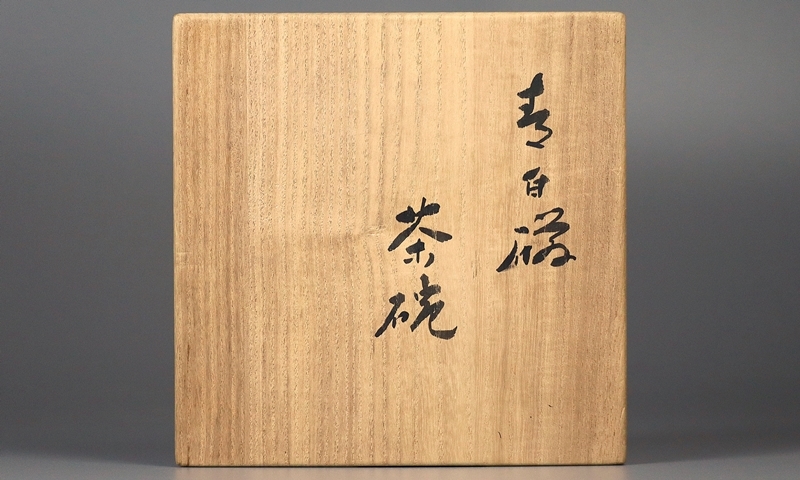 青白磁
茶碗